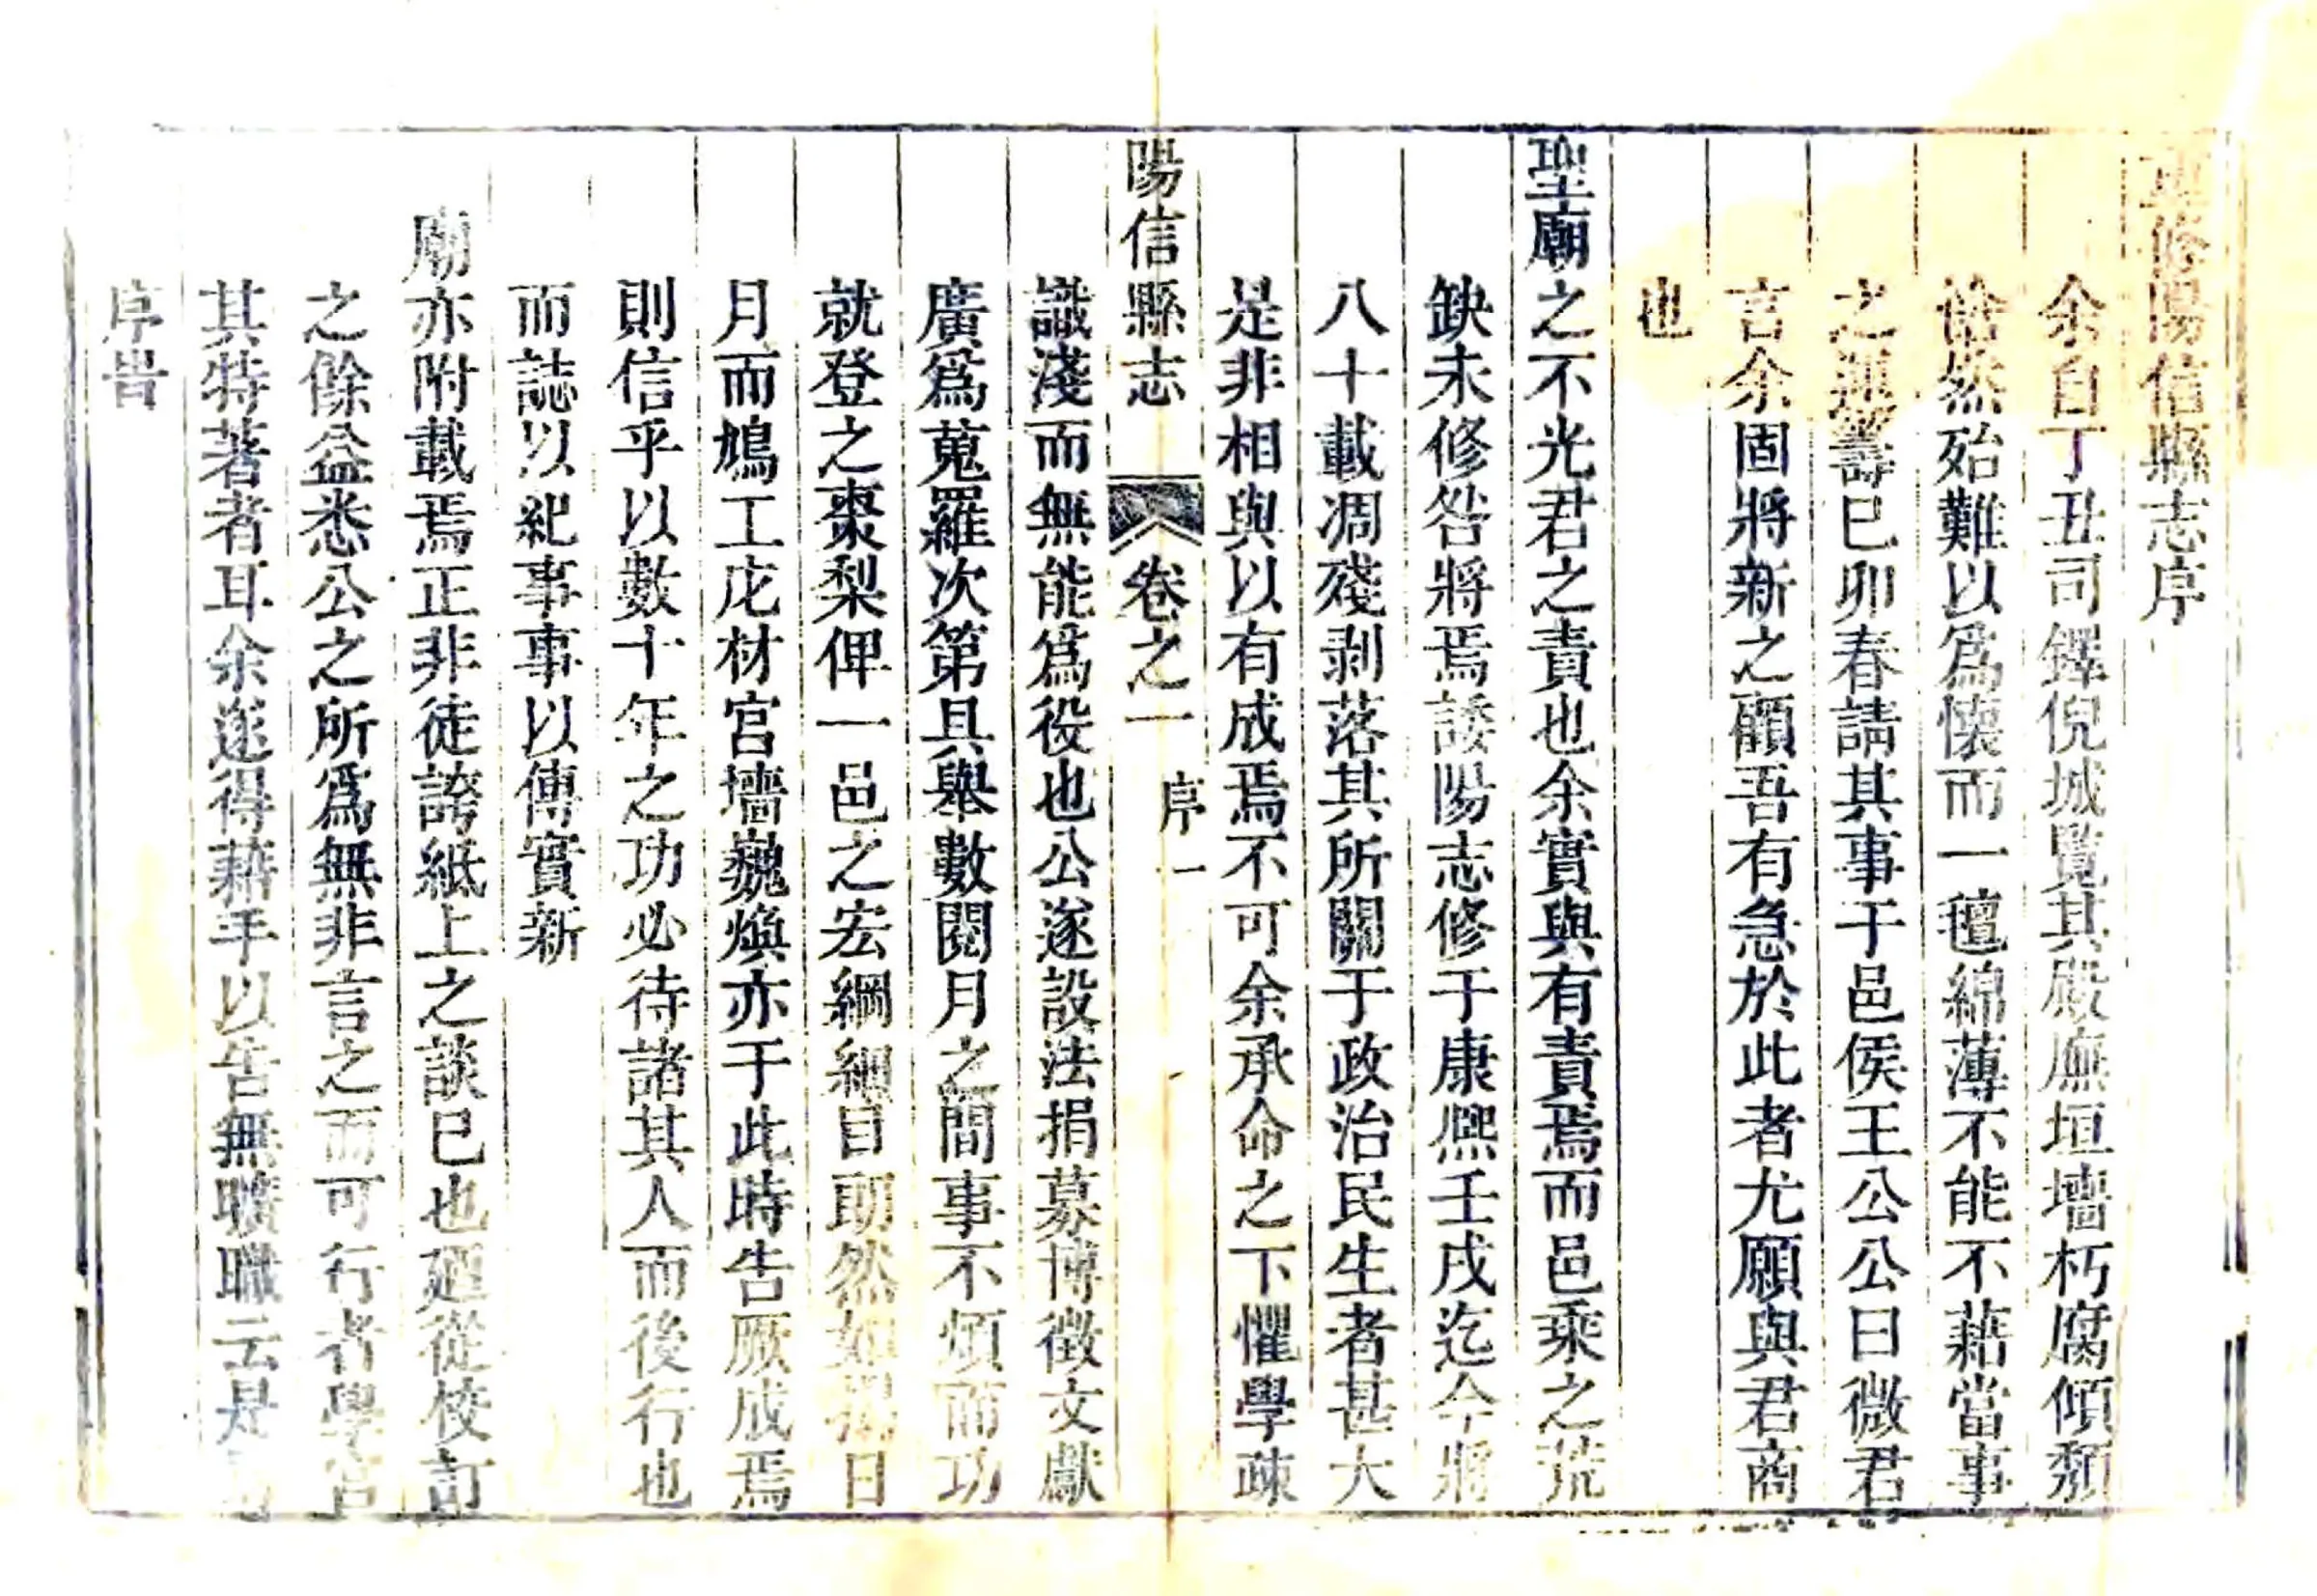 重修陽信縣志序
余自丁丑司鐸倪城覽其殿廡垣墻朽腐傾頽
愴然殆難以爲懷而一氊綿薄不能不藉當事
之運籌已卯春請其事于邑侯王公公曰微君
言余固將新之顧吾有急於此者尤願與君商
也
聖廟之不光君之責也余實與有責焉而邑乘之荒
缺未修咎將焉諉陽志修于康熈壬戌迄今將
八十載凋殘剥落其所關于政治民生者甚大
是非相與以有成焉不可余承命之下懼學疎
陽信縣志 卷之一 序 一
識淺而無能爲役也公遂設法捐募博徵文獻
廣爲蒐羅次第具舉數閱月之間事不煩而功
就登之棗梨俾一邑之宏綱細目昭然如揭日
月而鳩工庀材宫墻巍煥亦于此時告厥成焉
則信乎以數十年之功必待諸其人而後行也
而誌以紀事事以傳實新
廟亦附載焉正非徒誇紙上之談已也廷從校訂
之餘益悉公之所爲無非言之而可行者學宫
其特著者耳余遂得藉手以告無曠職云是
序旹